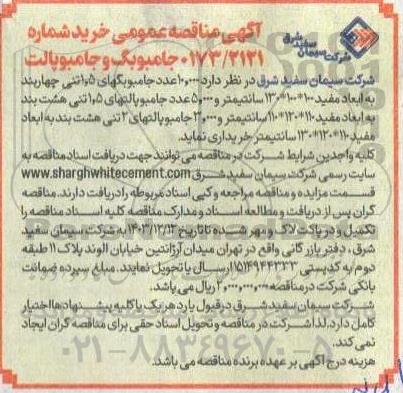 آگهی مناقصه عمومی خرید شماره
۰۱۷۳/۲۱۲۱ جامبوبگ و جامبوپالت
شرکت
سیمان سفید شرق
شرکت سیمان سفید شرق در نظر دارد ۱۰,۰۰۰ عدد جامبوبگهای ۱,۵ تنی چهاربند
به ابعاد مفید ۱۰۰*۱۰۰*۱۳۰ سانتیمتر و ۵,۰۰۰ عدد جامبوپالتهای ۱,۵ تنی هشت بند
به ابعاد مفید ۱۱۰*۱۲۰*۱۱۰ سانتیمتر و ۳,۰۰۰ جامبوپالتهای ۲ تنی هشت بند به ابعاد
مفید ۱۱۰*۱۲۰*۱۳۰ سانتیمتر خریداری نماید.
کلیه واجدین شرایط شرکت در مناقصه می توانند جهت دریافت اسناد مناقصه به
سایت رسمی شرکت سیمان سفید شرق www.sharghwhitecement.com
قسمت مزایده و مناقصه مراجعه و کپی اسناد مربوطه را دریافت دارند. مناقصه
گران پس از دریافت و مطالعه اسناد و مدارک مناقصه کلیه اسناد مناقصه را
تکمیل و در پاکت لاک و مهر شده تا تاریخ ۱۴۰۳/۱۲/۱۲ به شرکت سیمان سفید
شرق، دفتر بازرگانی واقع در تهران میدان آرژانتین خیابان الوند پلاک ۱۱ طبقه
دوم به کدپستی ۱۵۱۴۹۴۴۳۳۳ ارسال یا تحویل نمایند. مبلغ سپرده ضمانت
بانکی شرکت در مناقصه ۲,۰۰۰,۰۰۰,۰۰۰ ریال می باشد.
شرکت سیمان سفید شرق در قبول یا رد هر یک یا کلیه پیشنهادها اختیار
کامل دارد. لذا شرکت در مناقصه و تحویل اسناد حقی برای مناقصه گران ایجاد
نمی کند.
هزینه درج آگهی بر عهده برنده مناقصه می باشد.
۰۲۱-۸۸۳۴۹۶۷۰-۵